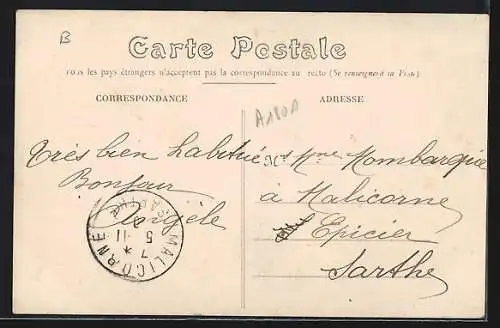 B
Carte Postale
Tous les pays étrangers n'acceptent pas la correspondance au recto (Se renseigner à la Poste)
CORRESPONDANCE
ADRESSE
A180A
très bien habitué
Bonjour
Angèle
Mr Mme Mombarquie
à Malicorne
Epicier
Sarthe
MALICORNE
SARTHE
7 * 5 11